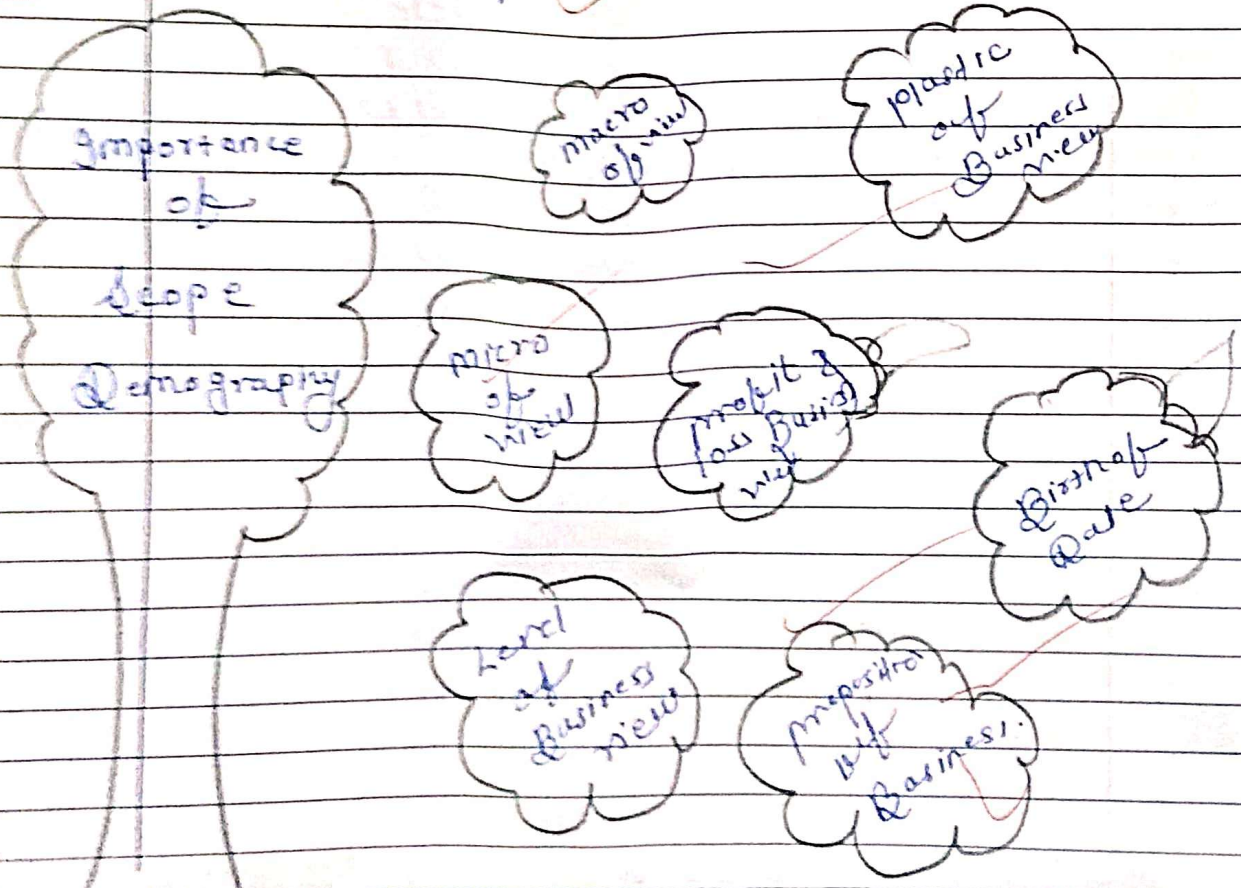 Importance
of
Scope
Demography
macro
of view
plastic
of
Business
view
micro
of
view
profit &
loss Busis
view
Birth of
Date
Land
of
Business
view
preposition
of
Business.